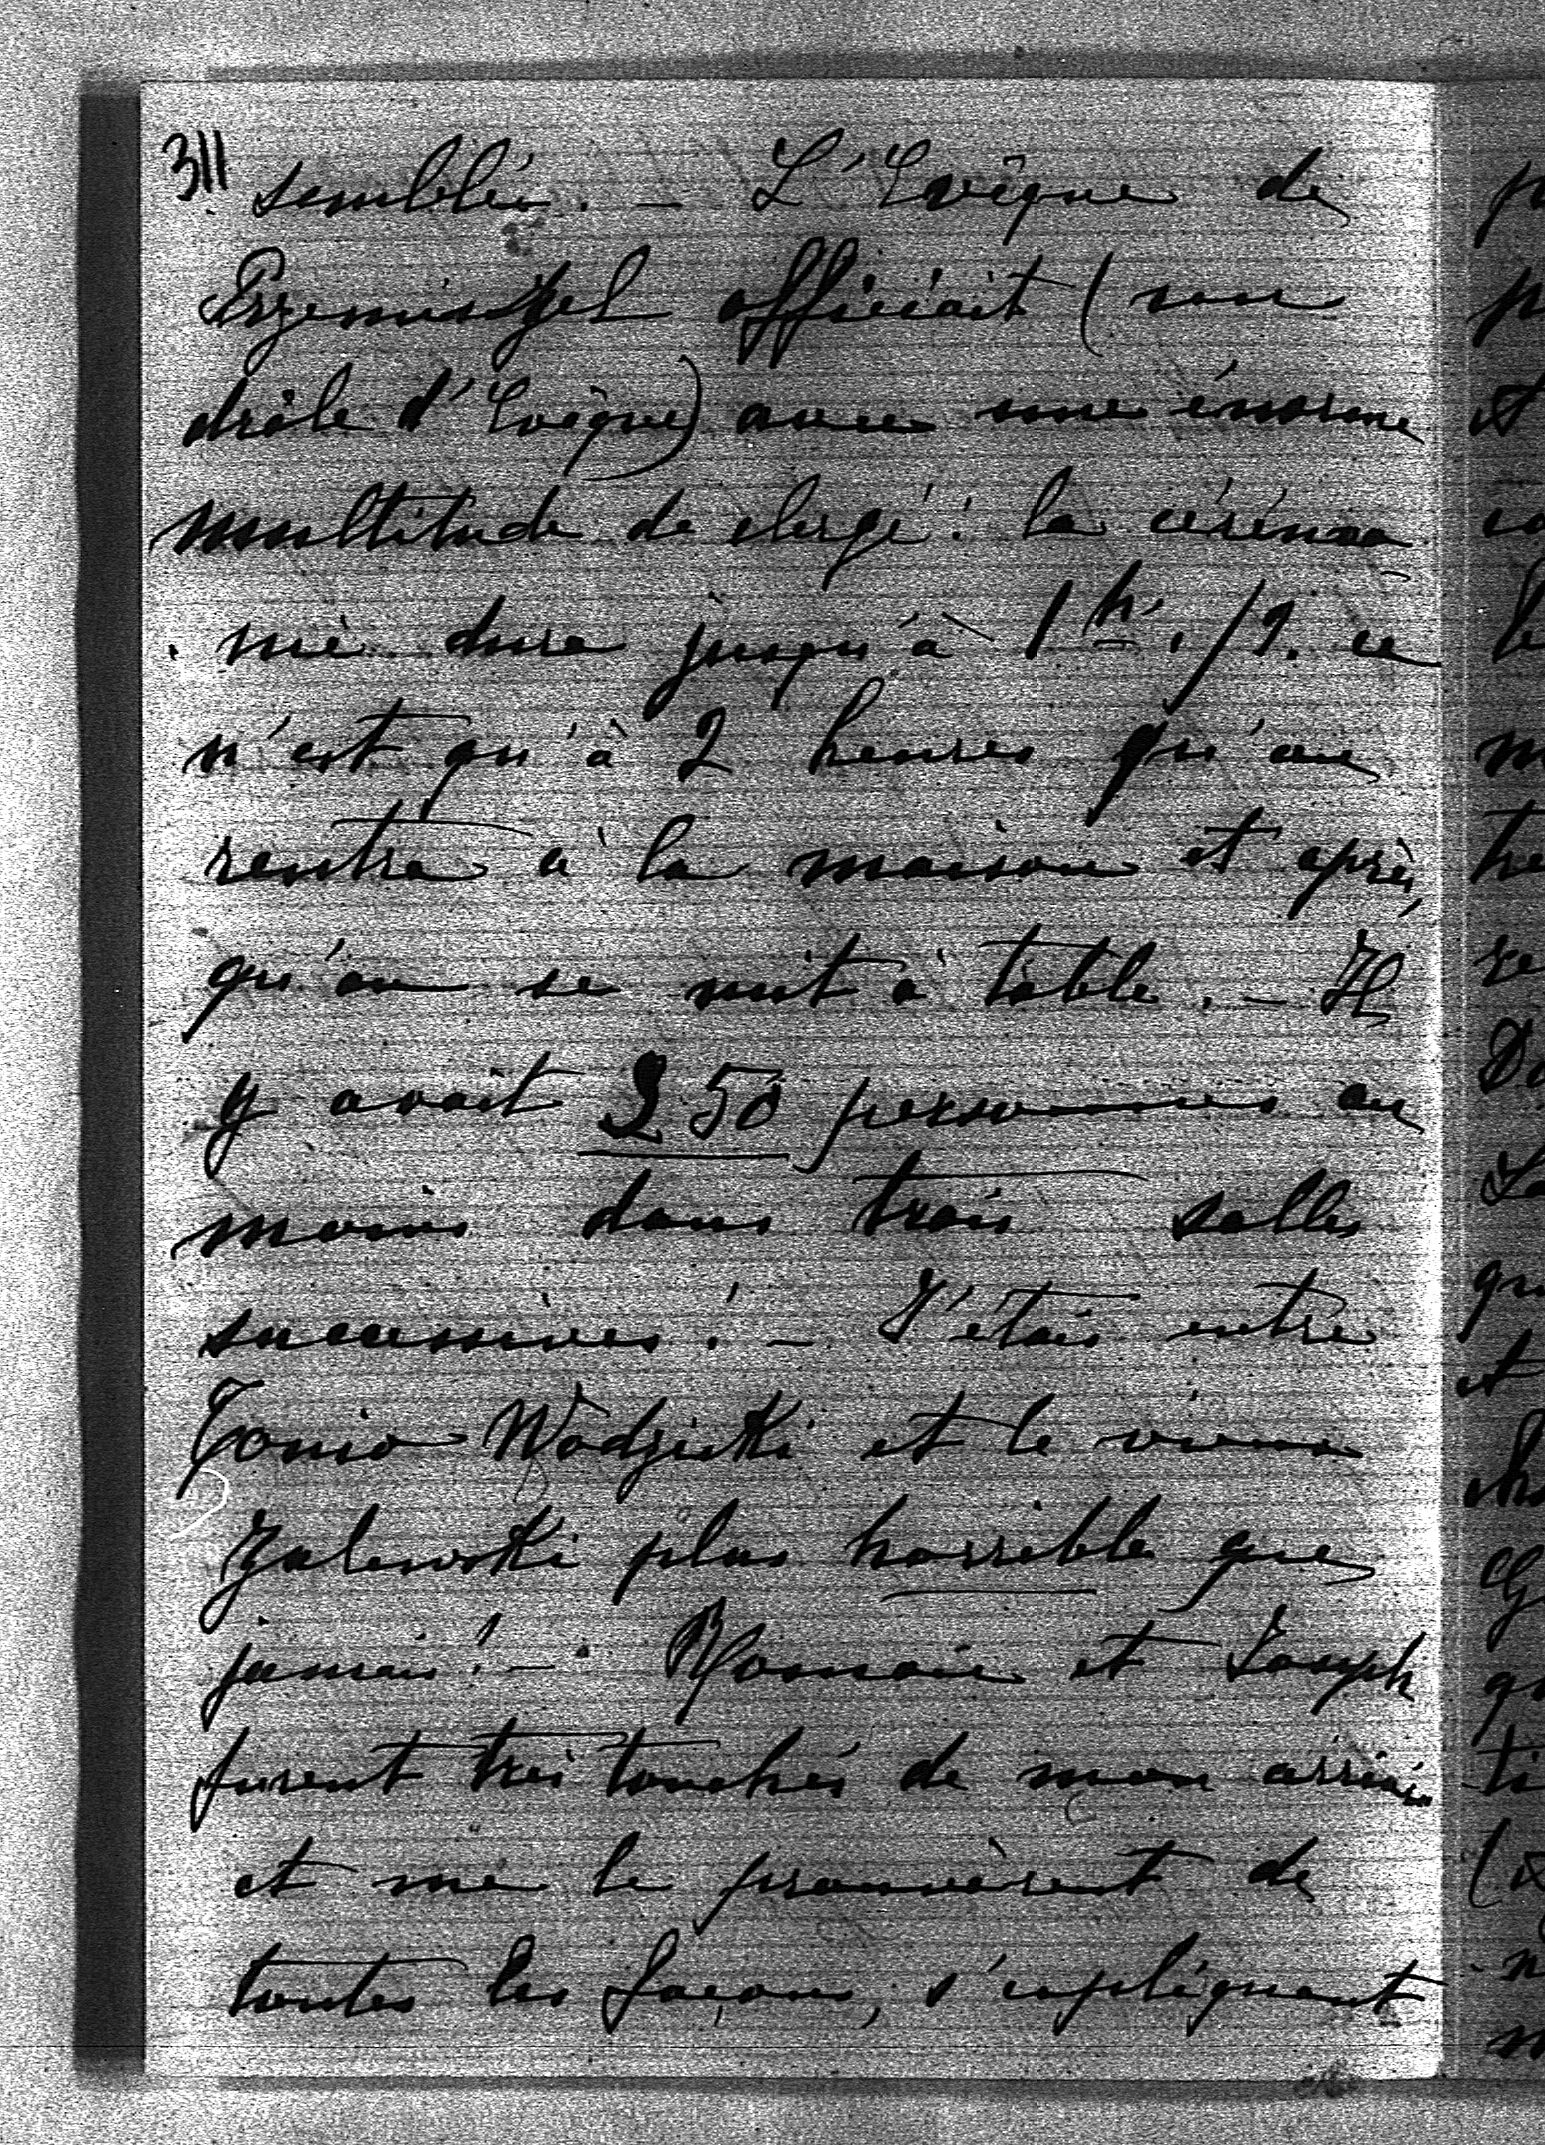 311
semblée. — L'Evêque de
Przemiszel officiait (un
drôle d'Evêque) avec une énorme
multitude de clergé! la cérémo
nie dura jusqu'à 1 h. 1/2. ce
n'est qu'à 2 heures qu'on
rentra à la maison et après
qu'on se mit à table. — Il
y avait 250 personnes au
moins dans trois salles
successives! — J'étais entre
Tonio Wodzicki et le vieux
Zalewski plus horrible que
jamais! — Romaine et Joseph
furent très touchés de mon arrivée
et me le prouvèrent de
toutes les façons, s'expliquant